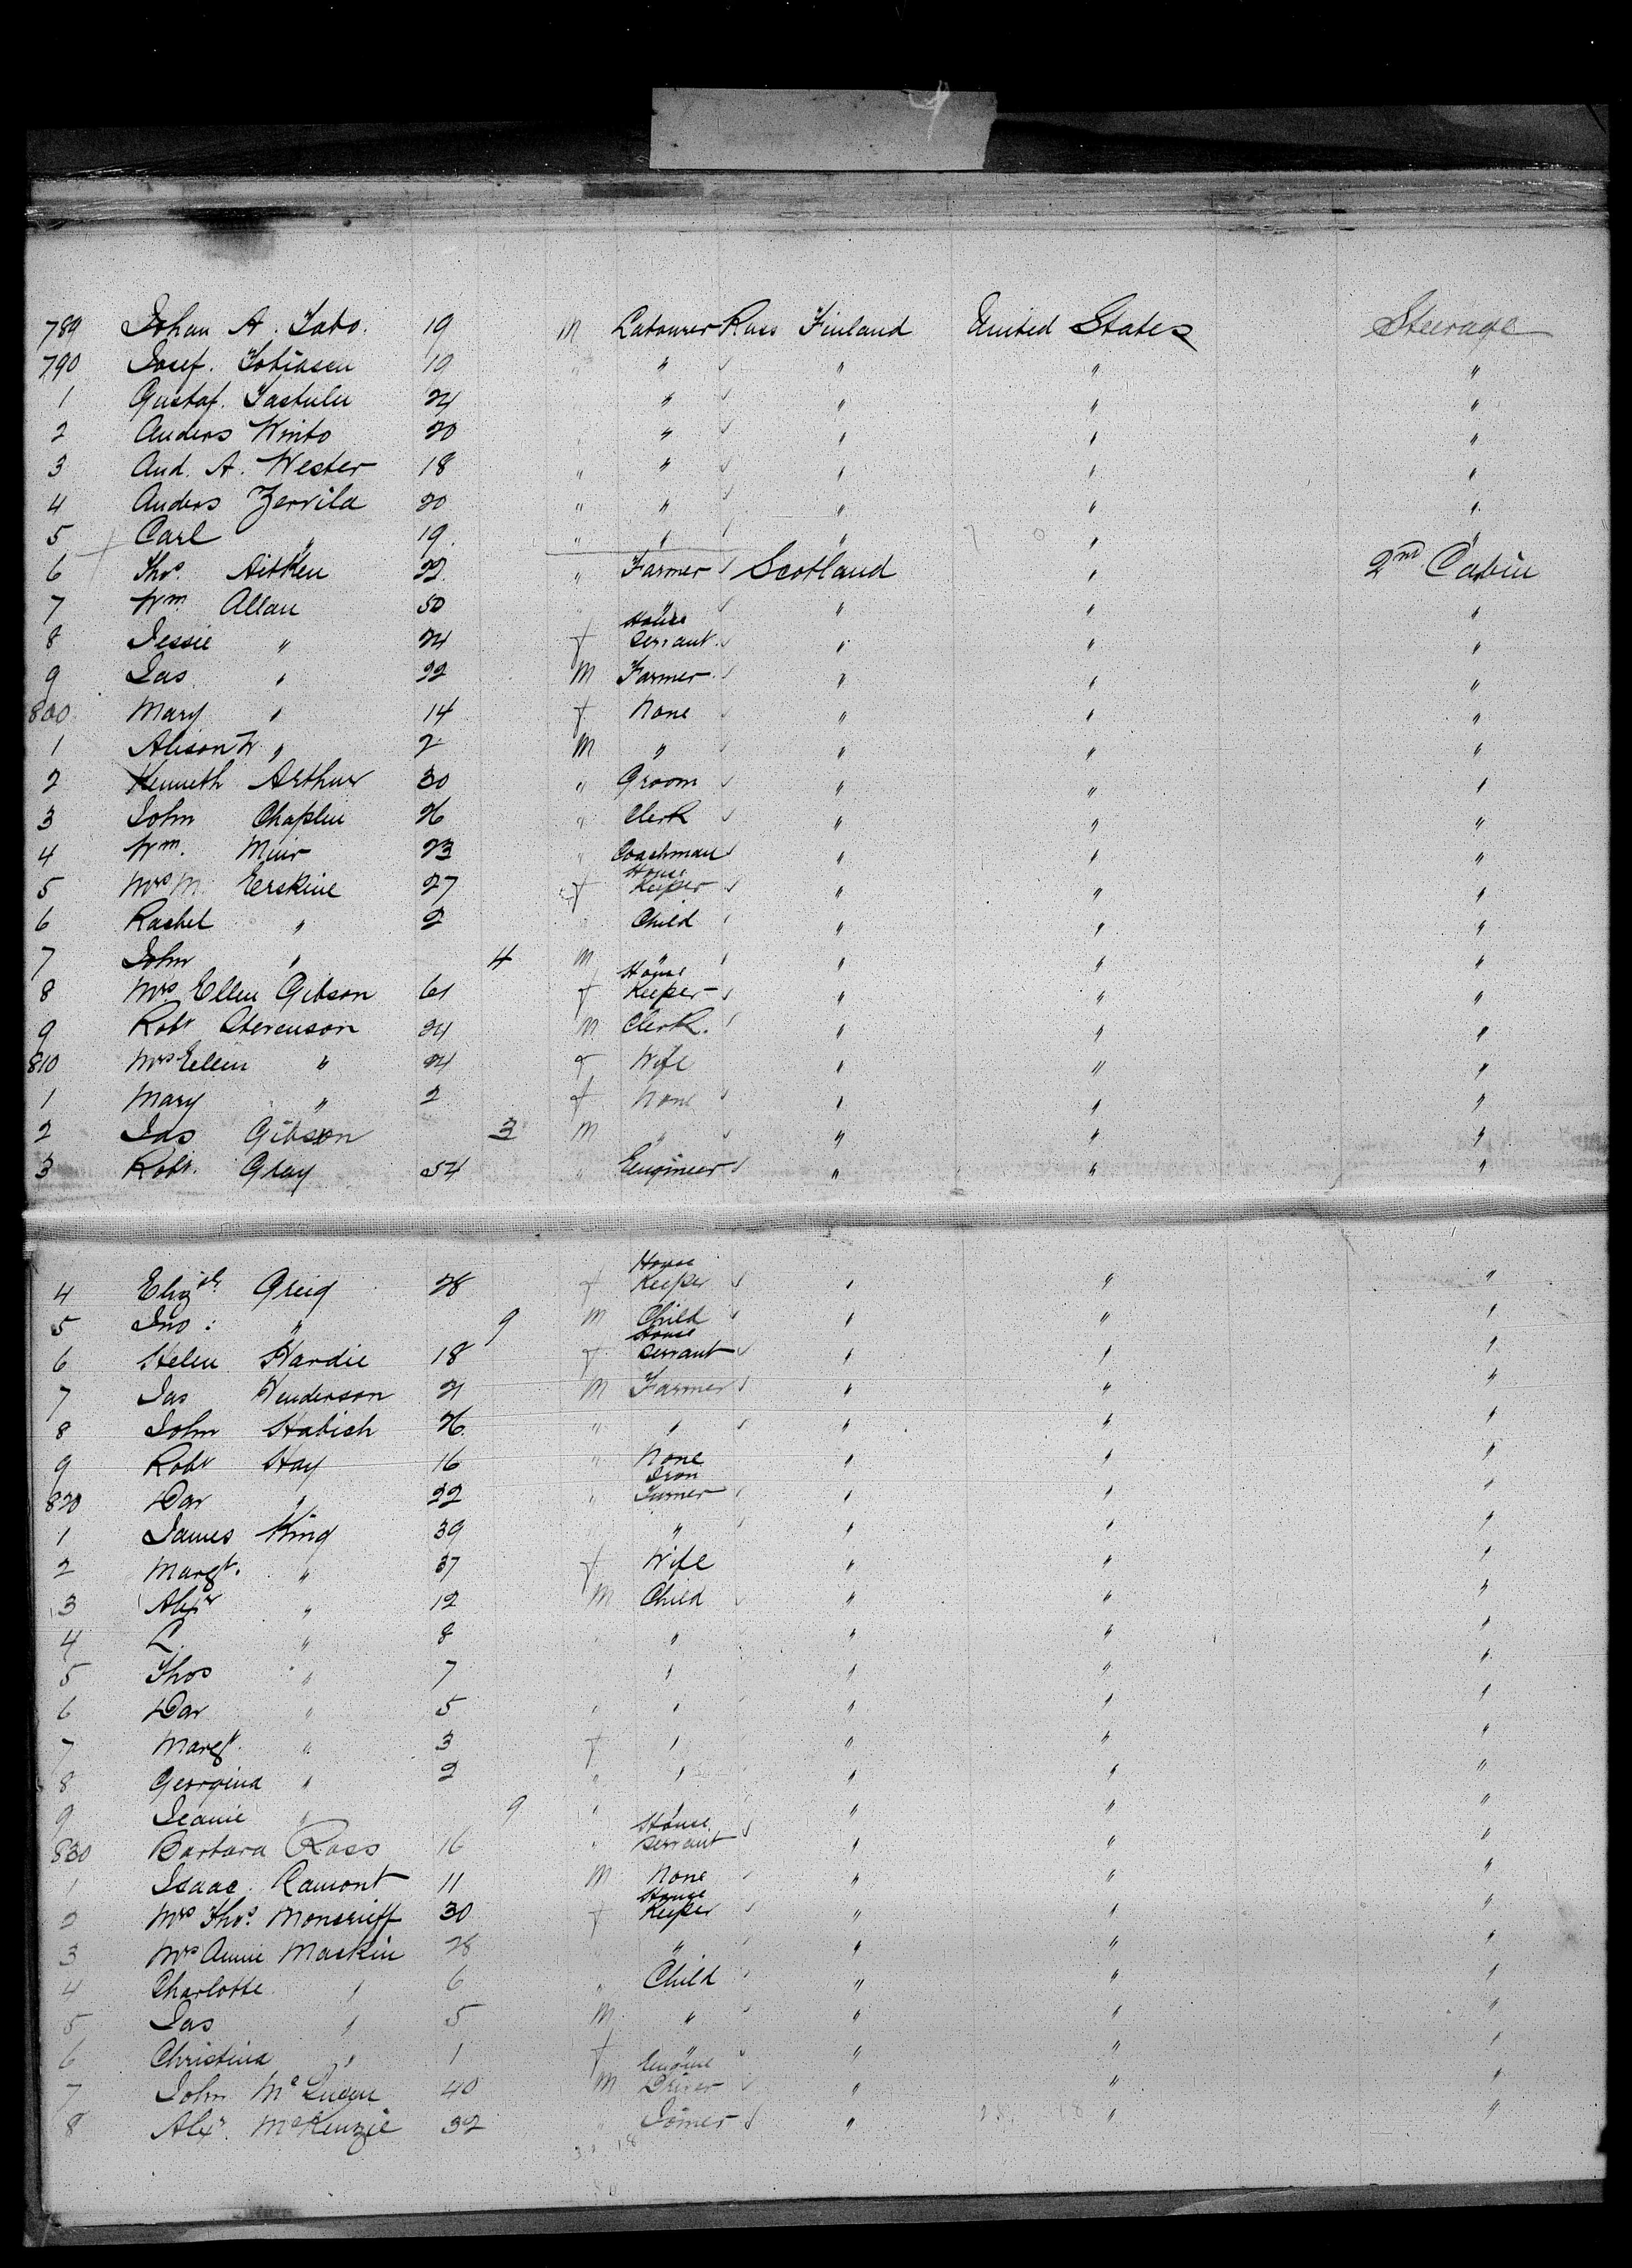 789 Johan A. Tabo. 19 m Labourer Russ Finland United States Steerage
790 Josef. Tobiasen 19 " " " " "
1 Gustaf. Tastulu 24 " " " "
2 Anders Winto 20 " " " "
3 And. A. Wester 18 " " " " "
4 Anders Zervila 20 " " " " "
5 Carl " 19. " " " " "
6 Thos. Aitken 22. " Farmer Scotland " 2nd Cabin
7 Wm Allan 50 " " " " "
8 Jessie " 24 f House Servant. " " "
9 Jas " 22 M Farmer " " "
800 Mary " 14 f None " " "
1 Alison W " 2 M " " " "
2 Kenneth Arthur 30 " Groom " " "
3 John Chaplin 26 " Clerk " " "
4 Wm. Muir 23 " Coachman " " "
5 Mrs M. Erskine 27 f House Keeper " " "
6 Rachel " 2 " Child " " "
7 John " 4 M " " " "
8 Mrs Ellen Gibson 61 f House Keeper " " "
9 Robt Stevenson 24 M Clerk. " " "
810 Mrs Ellen " 24 f Wife " " "
1 Mary " 2 f None " " "
2 Jas Gibson 3 M " " " "
3 Robt. Gray 54 " Engineer " " "
4 Elizth Greig 28 f House Keeper " " "
5 Jno: " 9 M Child " " "
6 Helen Hardie 18 f House Servant " " "
7 Jas Henderson 21 M Farmer " " "
8 John Habich 26. " " " " "
9 Robt Hay 16 " None " " "
820 Dav " 22 " Iron Turner " " "
1 James King 39 " " " "
2 Margt. " 37 f Wife " " "
3 Alexr " 12 M Child " " "
4 L. " 8 " " " " "
5 Thos " 7 " " " "
6 Dav " 5 " " " " "
7 Margt. " 3 f " " " "
8 Georgina " 2 " " " " "
9 Jeanie " 9 " " " " "
830 Barbara Ross 16 " House Servant " " "
1 Isaac Ramont 11 M None " " "
2 Mrs Thos. Moncrieff 30 f House Keeper " " "
3 Mrs Annie Maskin 28 " " " "
4 Charlotte " 6 " Child " " "
5 Jas " 5 M " " " "
6 Christina " 1 f " " " "
7 John Mc 40 M Engine Driver " " "
8 Alexr. McKenzie 32 " Joiner " " "